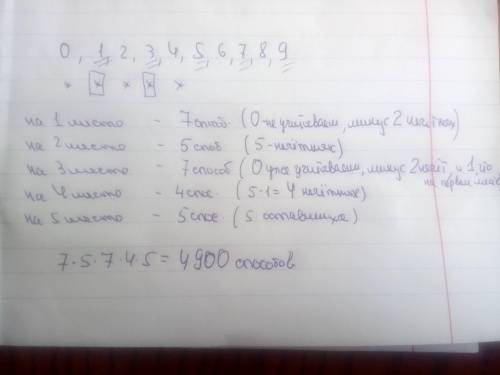 0, 1, 2, 3, 4, 5, 6, 7, 8, 9
× × × × ×
на 1 место - 7 способ. (0 не учитываем, минус 2 нечётных)
на 2 место - 5 способ (5 - нечётных)
на 3 место - 7 способ (0 уже учитываем, минус 2 нечёт, и 1, что на первом месте
на 4 место - 4 спос. (5-1=4 нечётных)
на 5 место - 5 спос (5 оставшихся)
7·5·7·4·5 = 4900 способов